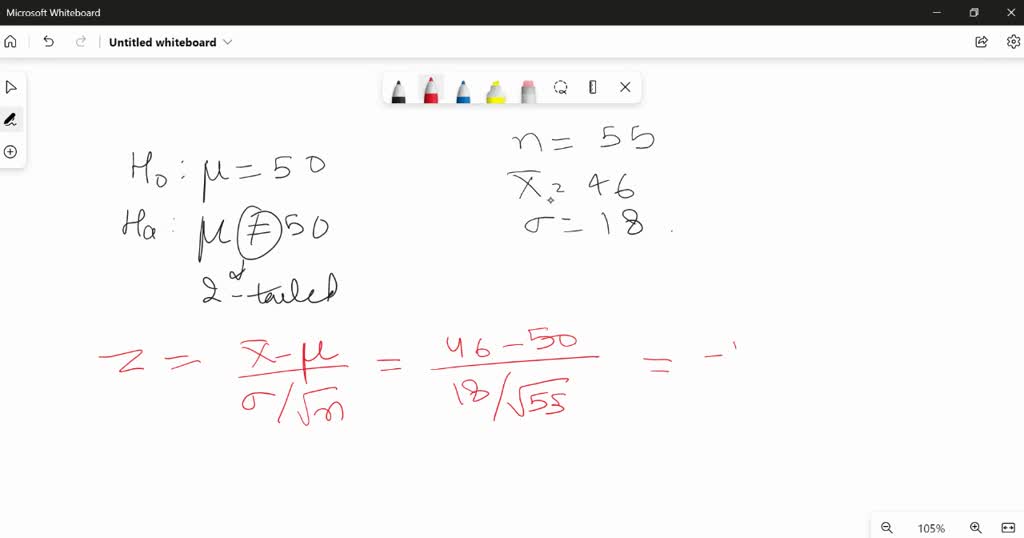 Microsoft Whiteboard
Untitled whiteboard
H₀ : μ = 50
Hₐ : μ ≠ 50
2-tailed
n = 55
x̄ = 46
σ = 18
z = x̄ - μ / σ/√n = 46 - 50 / 18/√55 = -
105%